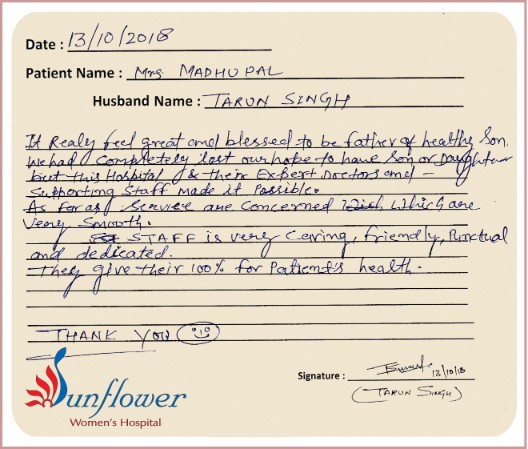 Date : 13/10/2018
Patient Name : Mrs. MADHU PAL
Husband Name : TARUN SINGH
It Realy feel great and blessed to be father of healthy Son.
We had Completely lost our hope to have Son or Daughter
but this Hospital & their Expert Doctors and -
Supporting Staff made it Possible.
As for as Service are Concerned Which are
Very Smooth.
STAFF is very Caring, friendly, Punctual
and dedicated.
They give their 100% for Patient's health.
THANK YOU
Signature : 13/10/18
(TARUN SINGH)
Sunflower
Women's Hospital